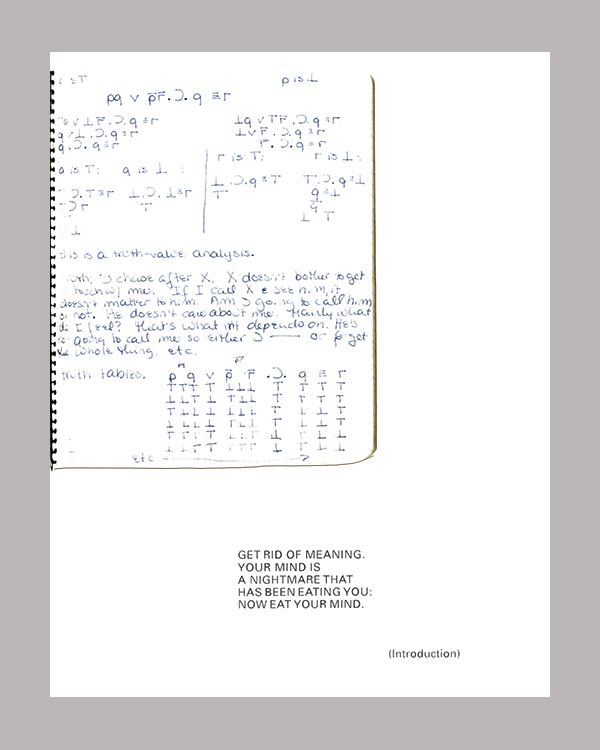 is T p is ⊥
pq ∨ p̄r̄ . Ɔ . q ≡ r
q ∨ ⊥ r̄ . Ɔ . q ≡ r ⊥q ∨ T r̄ . Ɔ . q ≡ r
q ∨ ⊥ . Ɔ . q ≡ r ⊥ ∨ r̄ . Ɔ . q ≡ r
q . Ɔ . q ≡ r r̄ . Ɔ . q ≡ r
q is T: q is ⊥ : r is T: r is ⊥ :
Ɔ . T ≡ r ⊥ . Ɔ . ⊥ ≡ r ⊥ . Ɔ . q ≡ T T . Ɔ . q ≡ ⊥
T Ɔ r T T q ≡ ⊥
q̄
⊥ ⊥ T
this is a truth-value analysis.
truth: I chase after X. X doesn't bother to get
touch w/ me. If I call X & see him, it
doesn't matter to him. Am I going to call him
or not. He doesn't care about me. Mainly what
do I feel? that's what it depends on. He's
going to call me so either I —— or forget
the whole thing. etc.
truth tables. p q ∨ p̄ r̄ . Ɔ . q ≡ r
etc
GET RID OF MEANING.
YOUR MIND IS
A NIGHTMARE THAT
HAS BEEN EATING YOU:
NOW EAT YOUR MIND.
(Introduction)